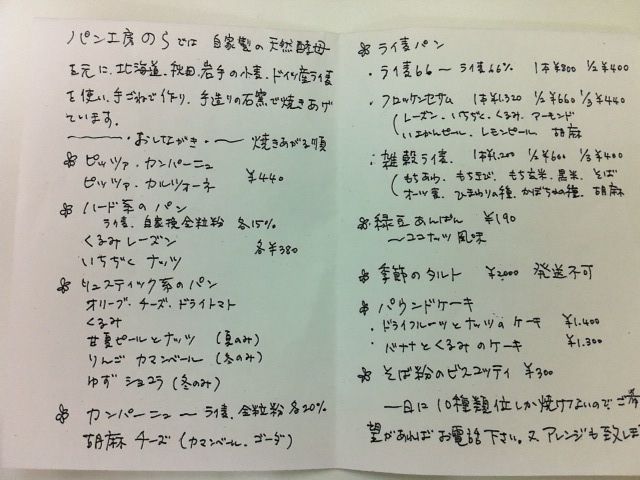 パン工房のらでは 自家製の天然酵母
を元に、北海道、秋田、岩手の小麦、ドイツ産ライ麦
を使い、手ごねで作り、手造りの石窯で焼きあげ
ています。
〜〜〜・おしながき・〜〜 焼きあがる順
ピッツァ・カンパーニュ
ピッツァ・カルツォーネ ¥440
ハード系のパン
ライ麦、自家挽全粒粉 各15%
くるみレーズン
いちぢくナッツ 各¥380
リュスティック系のパン
オリーブ・チーズ・ドライトマト
くるみ
甘夏ピールとナッツ (夏のみ)
りんごカマンベール (冬のみ)
ゆずショコラ (冬のみ)
カンパーニュ〜ライ麦、全粒粉各20%
胡麻チーズ (カマンベール、ゴーダ)
ライ麦パン
・ライ麦66〜ライ麦66% 1本¥800 1/2¥400
・フロッケンセサム 1本¥1,320 1/2¥660 1/3¥440
(レーズン・いちぢく・くるみ、アーモンド
いよかんピール、レモンピール 胡麻
・雑穀ライ麦、1本¥1,200 1/2¥600 1/3¥400
(もちあわ、もちきび、もち玄米、黒米、そば
オーツ麦、ひまわりの種、かぼちゃの種、胡麻
緑豆あんぱん ¥190
〜ココナッツ風味
季節のタルト ¥2000 発送不可
パウンドケーキ
・ドライフルーツとナッツのケーキ ¥1.400
・バナナとくるみのケーキ ¥1.300
そば粉のビスコッティ ¥300
一日に10種類位しか焼けないのでご希
望があればお電話下さい。又アレンジも致しま